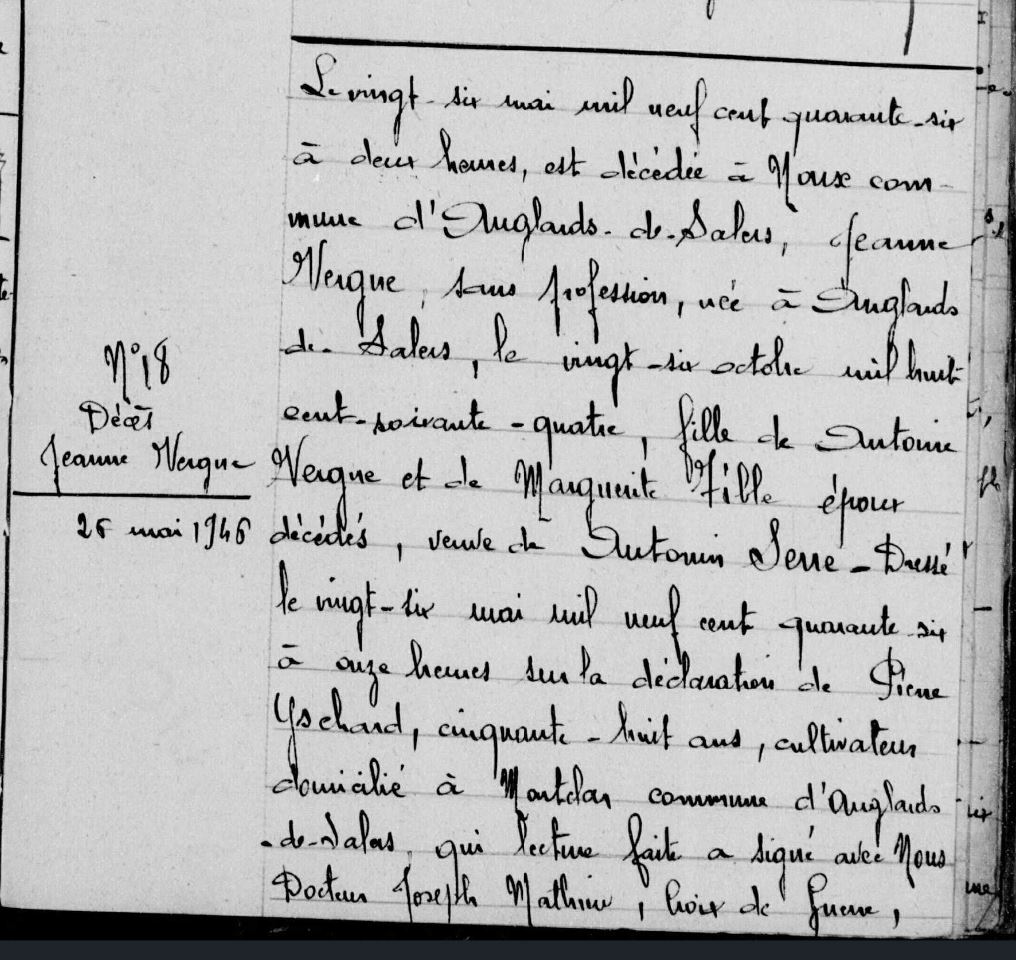 Le vingt-six mai mil neuf cent quarante-six
à deux heures, est décédée à Noux com-
mune d'Anglards-de-Salers, Jeanne
Vergne, sans profession, née à Anglards
de-Salers, le vingt-six octobre mil huit
cent-soixante-quatre, fille de Antoine
N°18
Décès
Jeanne Vergne
26 mai 1946
Vergne et de Marguerite Fille époux
décédés, veuve de Antonin Serre - Dressé
le vingt-six mai mil neuf cent quarante-six
à onze heures sur la déclaration de Pierre
Yschard, cinquante-huit ans, cultivateur
domicilié à Montclar commune d'Anglards
-de-Salers, qui lecture faite a signé avec Nous
Docteur Joseph Mathieu, Croix de Guerre,